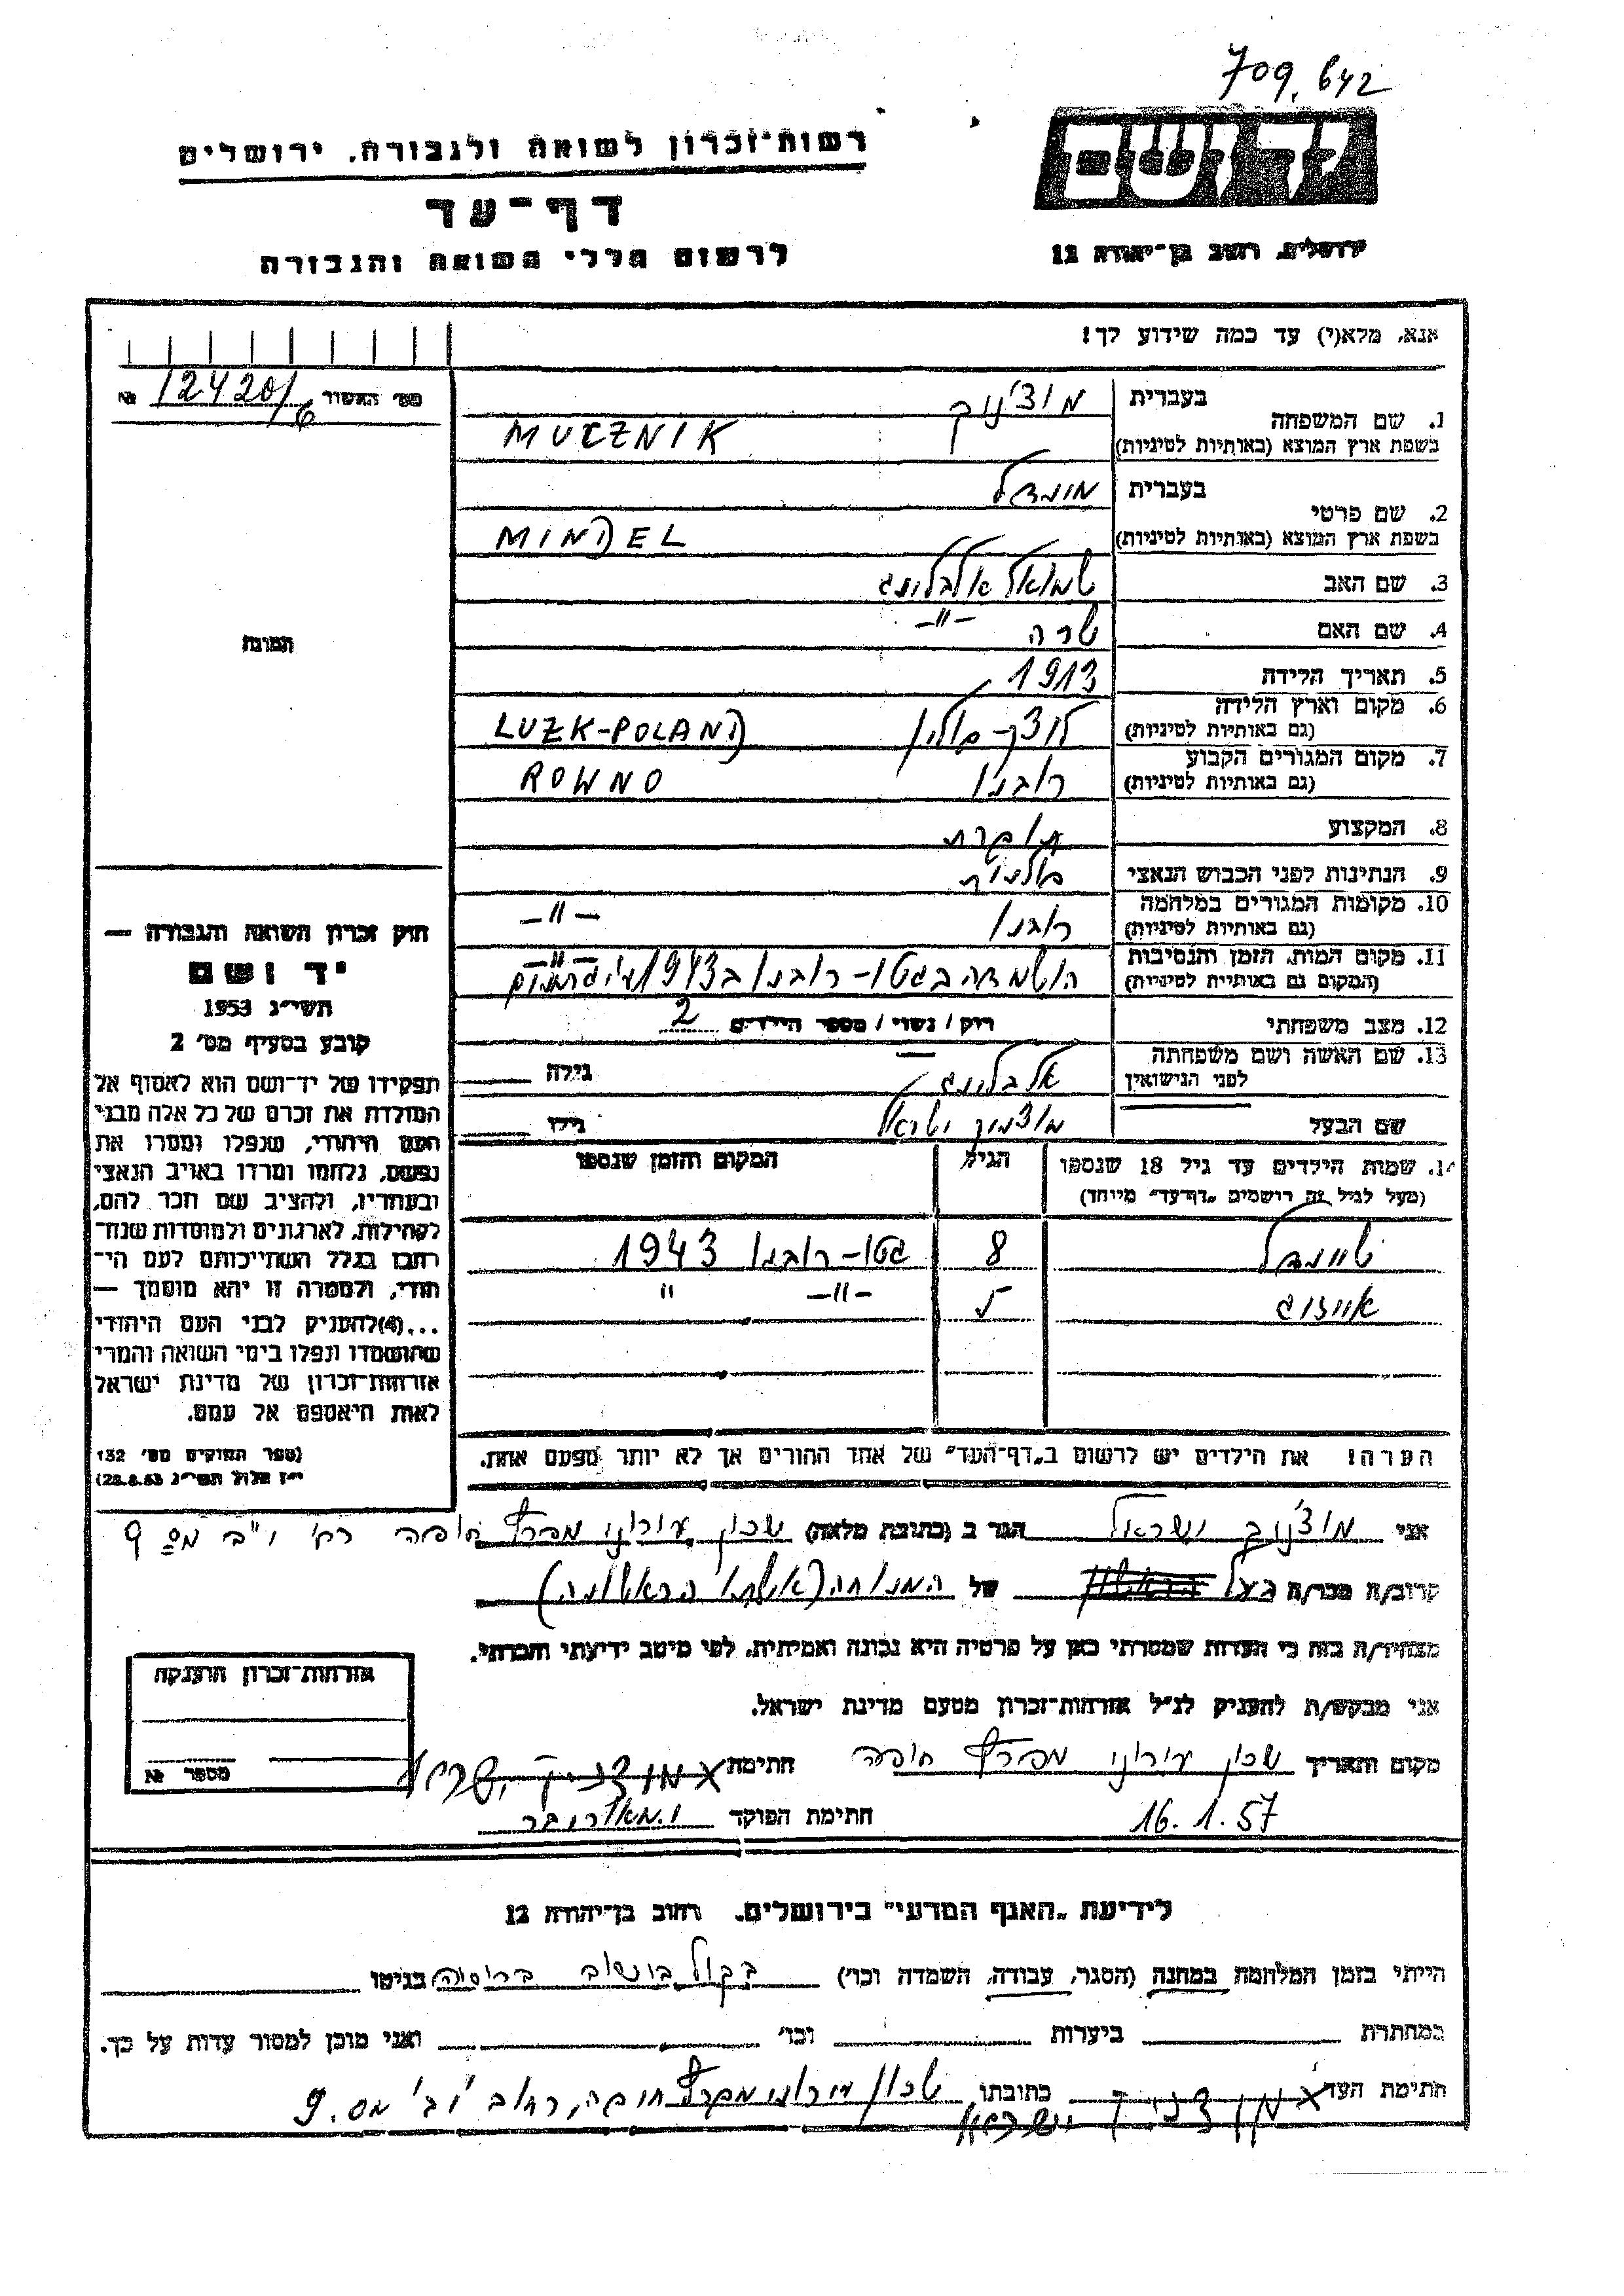 709,642
רשות-זכרון לשואה ולגבורה. ירושלים
דף-עד
לרשום חללי השואה והגבורה
יד ושם
ירושלים, רחוב בן-יהודה 12
אנא, מלא(י) עד כמה שידוע לך!
מס' האשור 12420/6 №
1. שם המשפחה
בעברית מוצ'ניק
בשפת ארץ המוצא (באותיות לטיניות) MUCZNIK
2. שם פרטי
בעברית מינדל
בשפת ארץ המוצא (באותיות לטיניות) MINDEL
3. שם האב שמואל
4. שם האם שרה -"-
5. תאריך הלידה 1913
6. מקום וארץ הלידה
(גם באותיות לטיניות) לוצק-פולין LUZK-POLAND
7. מקום המגורים הקבוע
(גם באותיות לטיניות) רובנו ROWNO
8. המקצוע תופרת
9. הנתינות לפני הכבוש הנאצי פולנית
10. מקומות המגורים במלחמה
(גם באותיות לטיניות) רובנו -"-
11. מקום המות, הזמן והנסיבות
(המקום גם באותיות לטיניות) הושמדה בגטו-רובנו ב1943
12. מצב משפחתי רווק / נשוי / מספר הילדים 2
13. שם האשה ושם משפחתה
לפני הנישואין גילה
שם הבעל מוצ'ניק ישראל גילו
14. שמות הילדים עד גיל 18 שנספו
(מעל לגיל זה רושמים "דף-עד" מיוחד)
הגיל
המקום והזמן שנספו
שיינדל 8 גטו-רובנו 1943
5 -"- "
הערה! את הילדים יש לרשום ב"דף-העד" של אחד ההורים אך לא יותר מפעם אחת.
התמונה
חוק זכרון השואה והגבורה —
יד ושם
תשי"ג 1953
קובע בסעיף מס' 2
תפקידו של יד-ושם הוא לאסוף אל
המולדת את זכרם של כל אלה מבני
העם היהודי, שנפלו ומסרו את
נפשם, נלחמו ומרדו באויב הנאצי
ובעוזריו, ולהציב שם וזכר להם,
לקהילות, לארגונים ולמוסדות שנח-
רבו בגלל השתייכותם לעם היה-
ודי, ולמטרה זו יהא מוסמך —
...(4)להעניק לבני העם היהודי
שהושמדו ונפלו בימי השואה והמרי
אזרחות-זכרון של מדינת ישראל
לאות היאספם אל עמם.
(ספר החוקים מס' 132
י"ז אלול תשי"ג 28.8.53)
אני מוצ'ניק ישראל הגר ב (כתובת מלאה) שכון עירוני מפרץ חיפה רח' י"ב מס 9
קרוב/ה מכר/ה בעל של המנוחה (אשתו הראשונה)
מצהיר/ה בזה כי העדות שמסרתי כאן על פרטיה היא נכונה ואמיתית, לפי מיטב ידיעתי והכרתי.
אני מבקש/ת להעניק לנ"ל אזרחות-זכרון מטעם מדינת ישראל.
מקום ותאריך שכון עירוני מפרץ חיפה חתימה מוצניק ישראל
16.1.57 חתימת הפוקד
אזרחות-זכרון הוענקה
מספר №
לידיעת "האגף המדעי" בירושלים. רחוב בן-יהודה 12
הייתי בזמן המלחמה במחנה (הסגר, עבודה, השמדה וכו') ברוסיה בגיטו
במחתרת ביערות וכו' ואני מוכן למסור עדות על כך.
חתימת העד מוצניק ישראל כתובתו שכון עירוני מפרץ חיפה, רחוב י"ב מס. 9